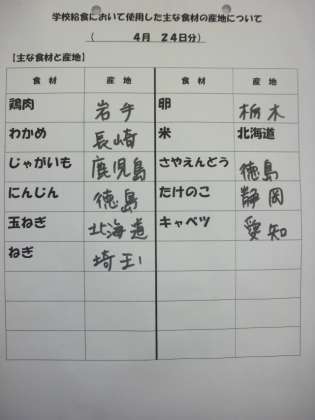 学校給食において使用した主な食材の産地について
（　　　4月　24日分）
【主な食材と産地】
食材　産地　食材　産地
鶏肉　岩手　卵　栃木
わかめ　長崎　米　北海道
じゃがいも　鹿児島　さやえんどう　徳島
にんじん　徳島　たけのこ　静岡
玉ねぎ　北海道　キャベツ　愛知
ねぎ　埼玉